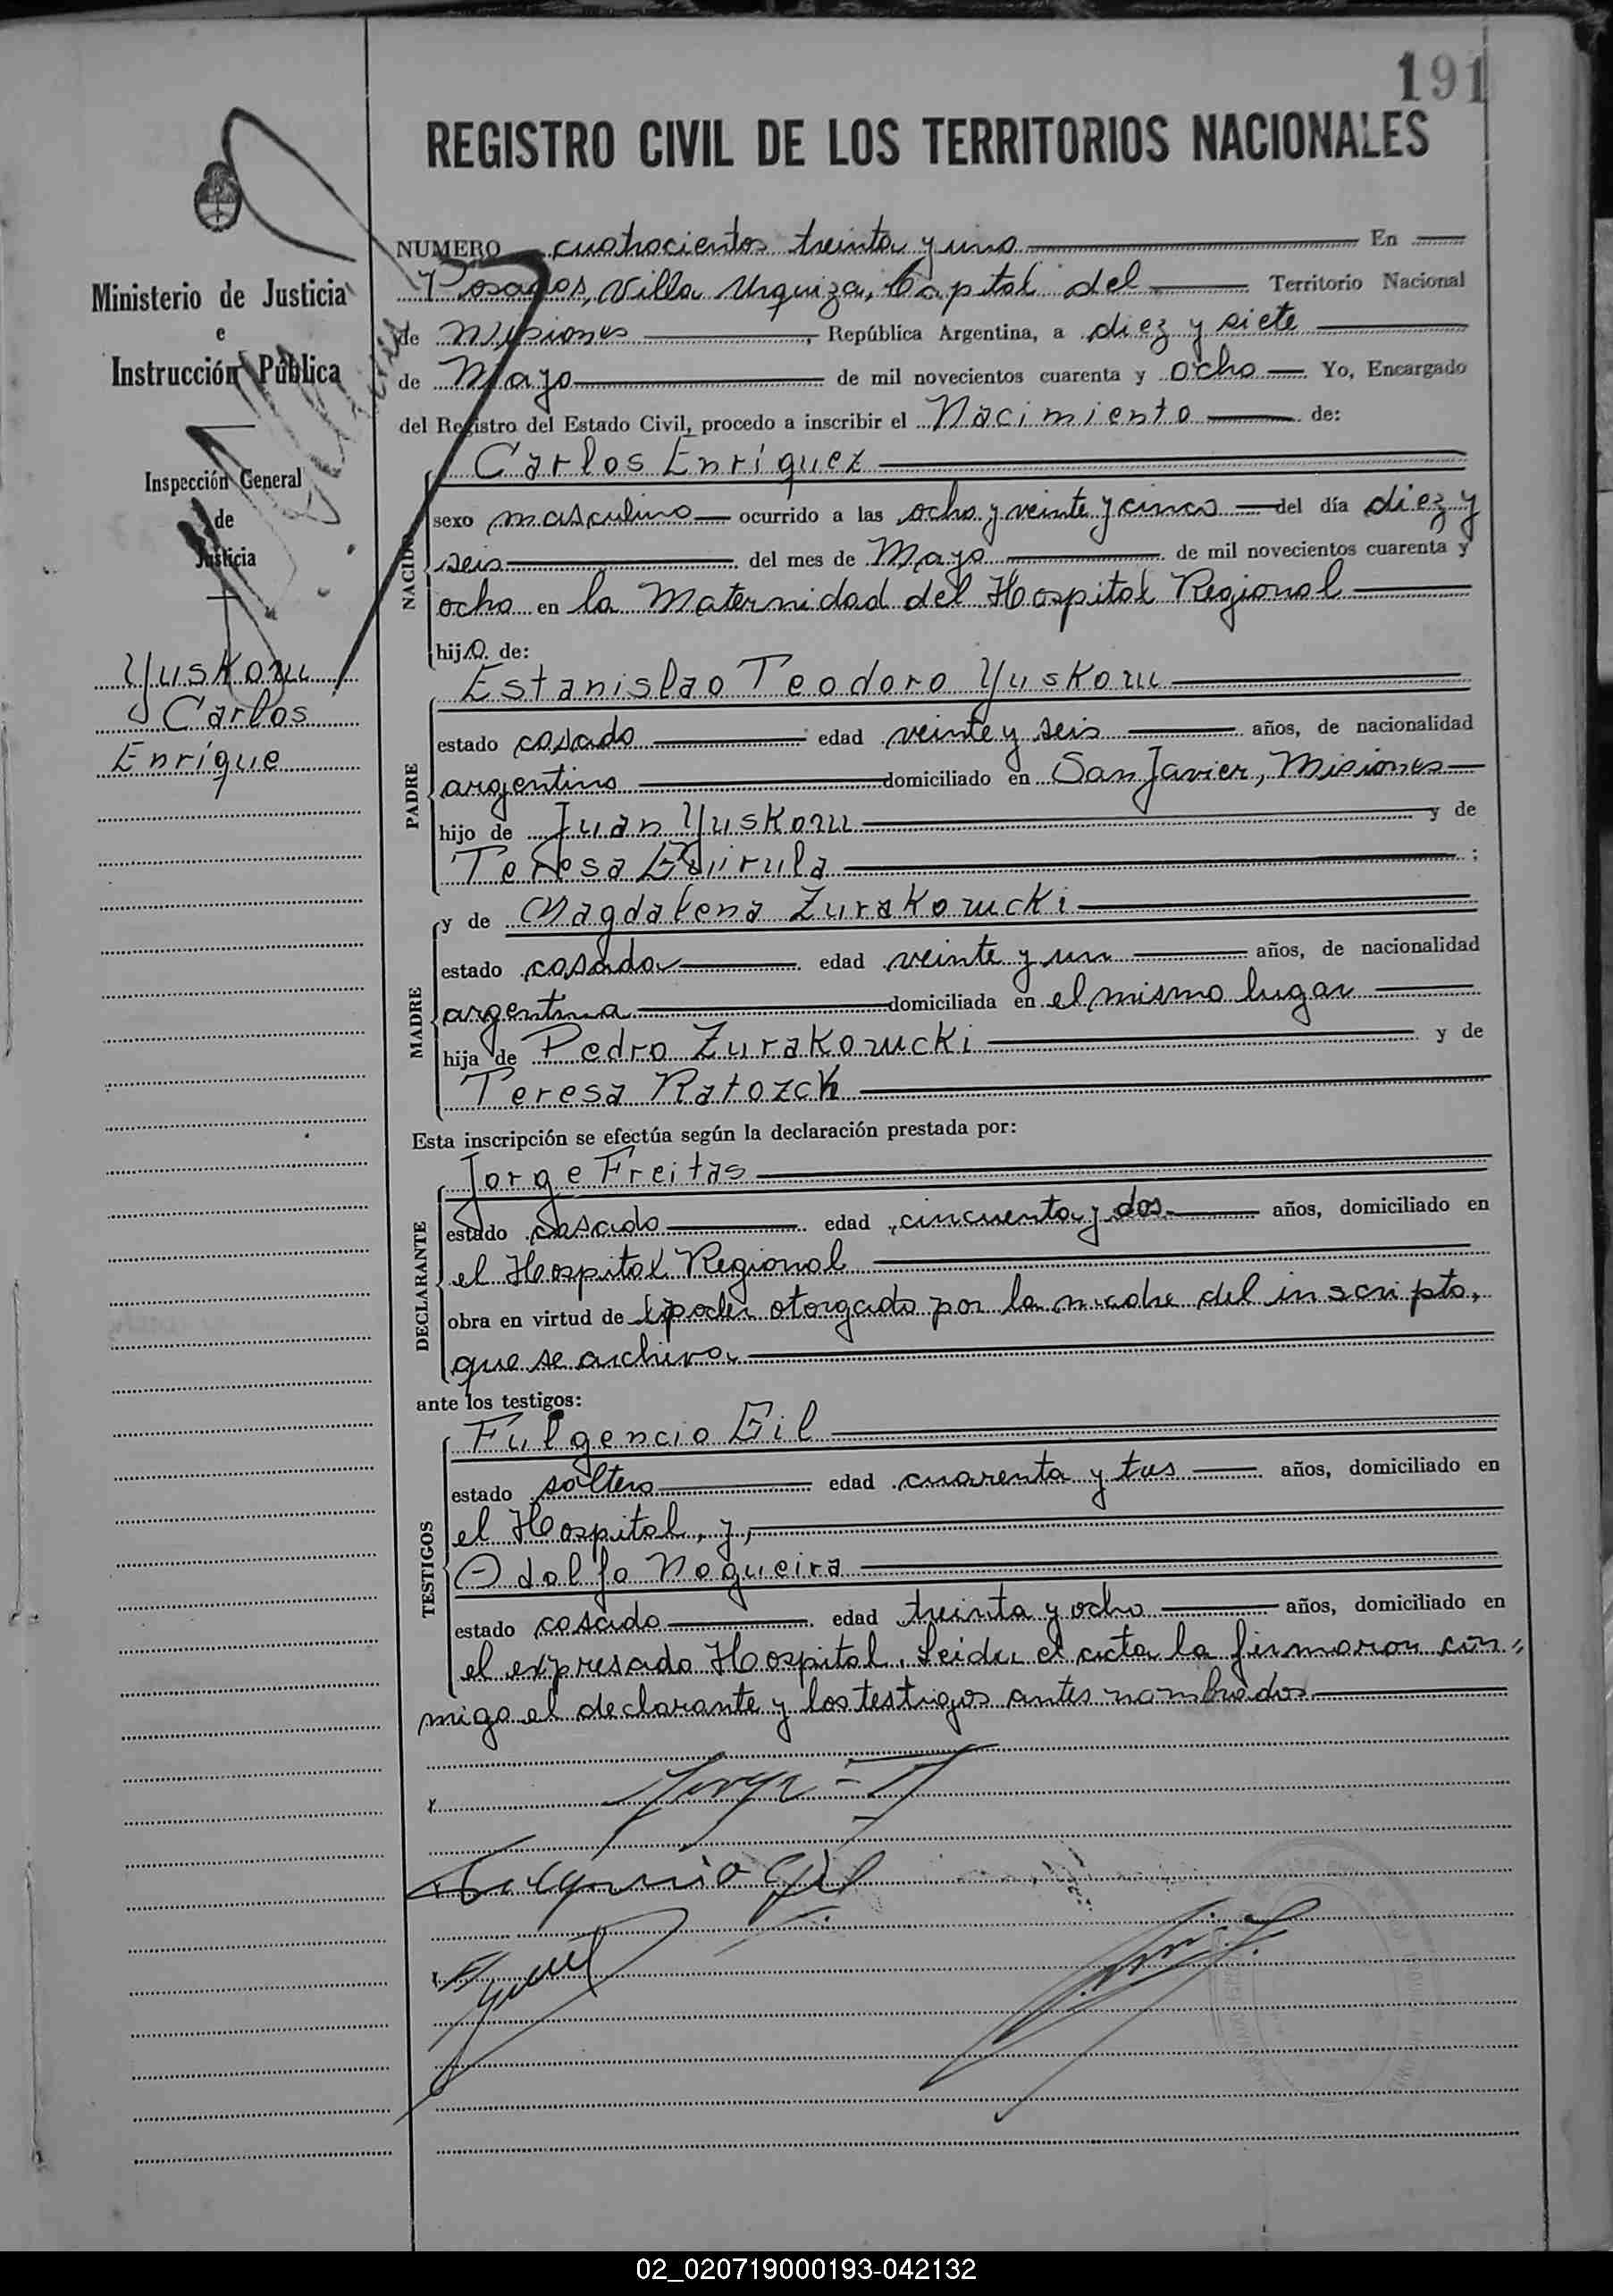 191
REGISTRO CIVIL DE LOS TERRITORIOS NACIONALES
Ministerio de Justicia
e
Instrucción Pública
Inspección General
de
Justicia
Yuskow
Carlos
Enrique
NUMERO cuatrocientos treinta y uno En
Posadas, Villa Urquiza, Capital del Territorio Nacional
de Misiones, República Argentina, a diez y siete
de Mayo de mil novecientos cuarenta y ocho Yo, Encargado
del Registro del Estado Civil, procedo a inscribir el Nacimiento de:
NACIDO
Carlos Enríquez
sexo masculino ocurrido a las ocho y veinte y cinco del día diez y
seis del mes de Mayo de mil novecientos cuarenta y
ocho en la Maternidad del Hospital Regional
hijo de:
PADRE
Estanislao Teodoro Yuskow
estado casado edad veinte y seis años, de nacionalidad
argentino domiciliado en San Javier, Misiones
hijo de Juan Yuskow y de
Teresa ;
MADRE
y de Magdalena Zurakowcki
estado casada edad veinte y un años, de nacionalidad
argentina domiciliada en el mismo lugar
hija de Pedro Zurakowcki y de
Teresa Ratozch
Esta inscripción se efectúa según la declaración prestada por:
DECLARANTE
Jorge Freitas
estado casado edad cincuenta y dos años, domiciliado en
el Hospital Regional
obra en virtud de poder otorgado por la madre del inscripto,
que se archiva
ante los testigos:
TESTIGOS
Fulgencio Gil
estado soltero edad cuarenta y tres años, domiciliado en
el Hospital, y,
Adolfo Nogueira
estado casado edad treinta y ocho años, domiciliado en
el expresado Hospital. Leida el acta la firmaron con=
migo el declarante y los testigos antes nombrados
Fulgencio Gil
02_020719000193-042132